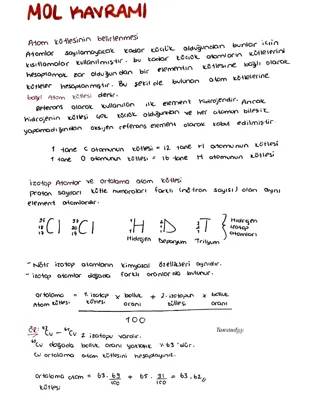 MOL KAVRAMI
Atom kütlesinin belirlenmesi
Atomlar sayılamayacak kadar küçük olduğundan bunlar için
kısıtlamalar kullanılmıştır. bu kadar küçük atomların kütlelerini
hesaplamak zor olduğundan bir elementin kütlesine bağlı olarak
kütleler hesaplanmıştır. Bu şekilde bulunan atom kütlelerine
bağıl Atom kütlesi denir.
Referans olarak kullanılan ilk element hidrojendir. Ancak
hidrojenin kütlesi çok küçük olduğundan ve her atomun bileşik
yapamadığından oksijen referans element olarak kabul edilmiştir
1 tane C atomunun kütlesi = 12 tane H atomunun kütlesi
1 tane O atomunun kütlesi = 16 tane H atomunun kütlesi
izotop Atomlar ve ortalama atom kütlesi
proton sayıları kütle numaraları farklı (nötron sayısı) olan aynı
element atomlarıdır.
Cl Cl H D T Hidrojen izotop atomları
Hidrojen Döteryum Trityum
- Nötr izotop atomların kimyasal özellikleri aynıdır.
- izotop atomlar doğada farklı oranlarda bulunur.
ortalama = 1. izotop x bolluk + 2. izotopun x bolluk
Atom kütlesi kütlesi oranı kütlesi oranı
100
ÖR: 63Cu - 65Cu 2 izotopu vardır.
63Cu doğada bolluk oranı yaklaşık %69'dur.
Cu ortalama atom kütlesini hesaplayınız.
ortalama atom = 63. 69/100 + 65. 31/100 = 63,62
kütlesi